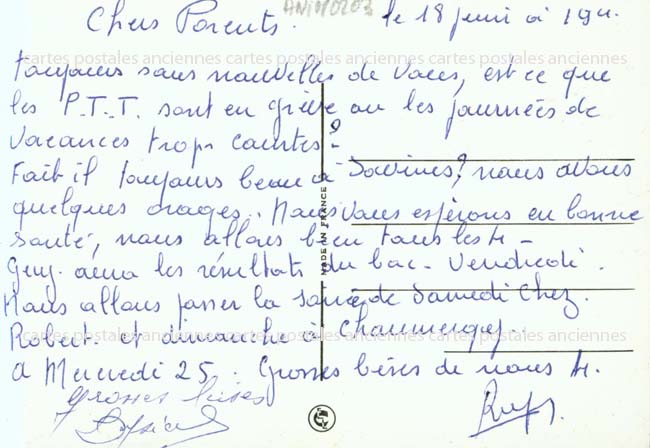 ANIM0203
Chers Parents. le 18 juin à 19H.
cartes postales anciennes cartes postales anciennes cartes postales anciennes
toujours sans nouvelles de vous, est ce que
les P.T.T. sont en grève ou les journées de
vacances trops courtes?
Fait il toujours beau à Savines? nous avons
quelques orages.. Nous vous espérons en bonne
santé, nous allons bien tous les 4 -
Guy. aura les résultats du bac. Vendredi.
Nous allons passer la soirée de Samedi chez.
Robert. et dimanche à Chaumergy..
cartes postales anciennes cartes postales anciennes cartes postales anciennes
à Mercredi 25. Grosses bises de nous 4.
grosses bises
MADE IN FRANCE